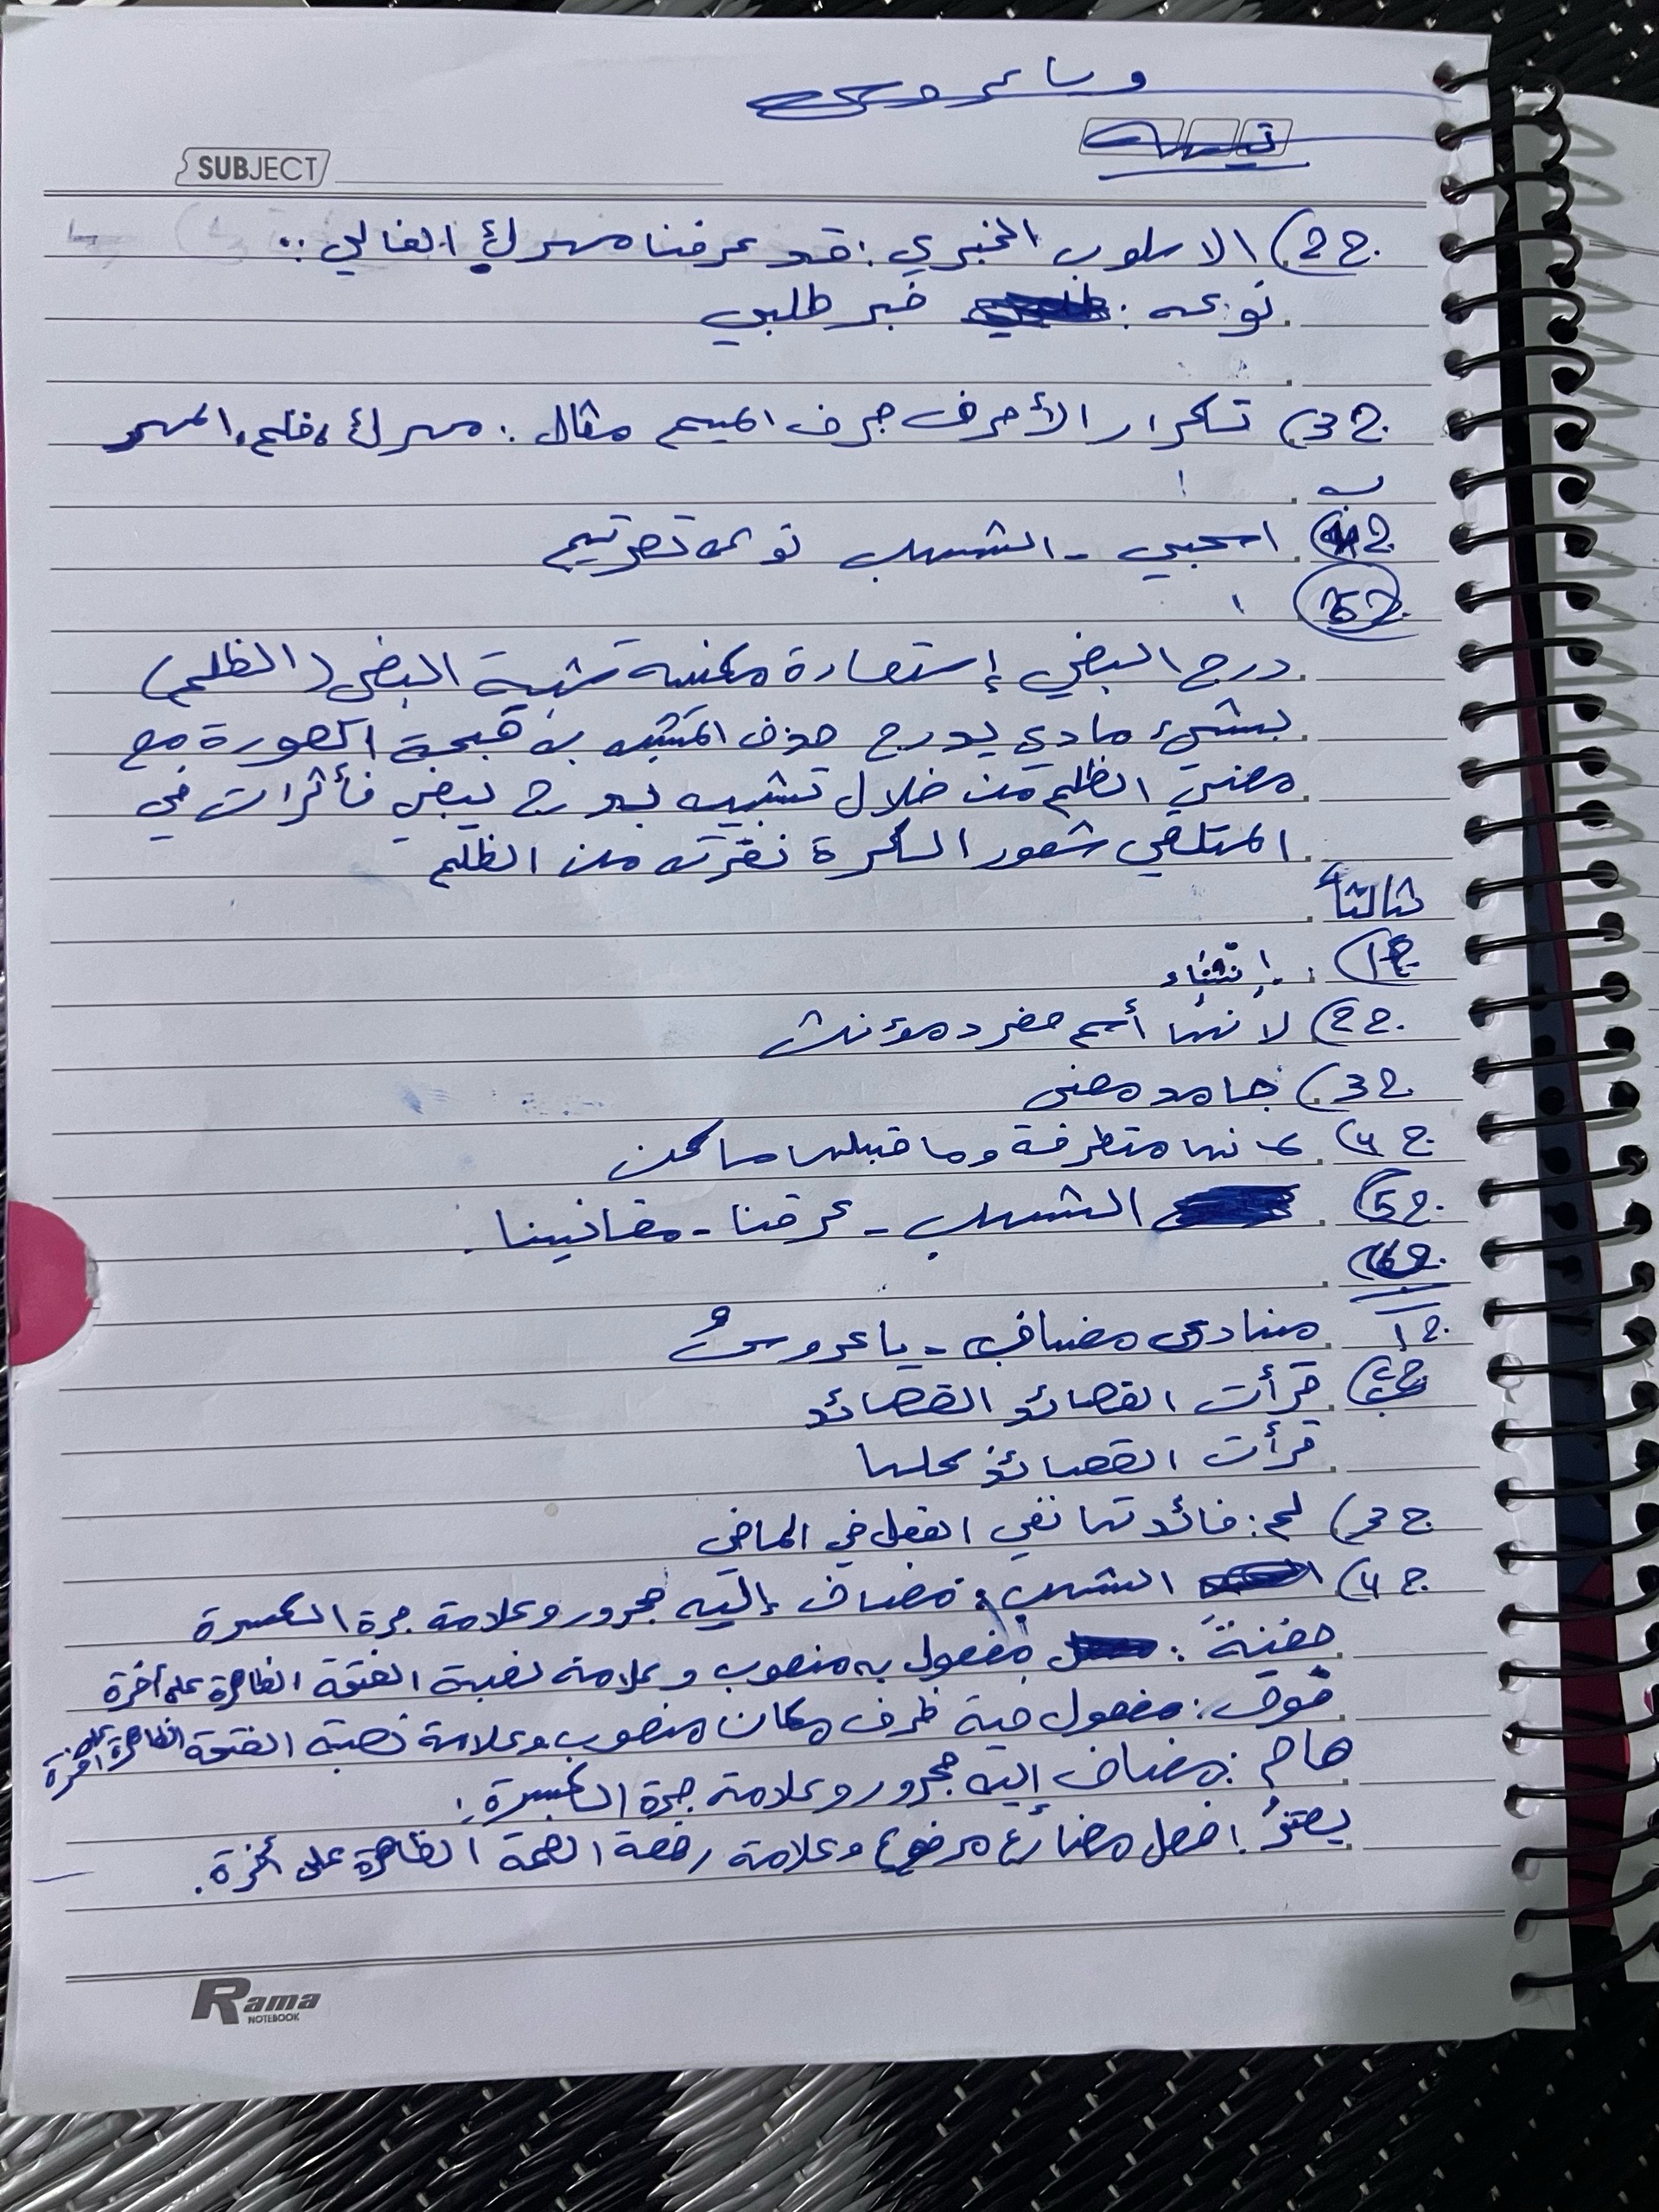 وياعروس
SUBJECT
ج2) الاسلوب الخبري : قد عرفنا مهرك الغالي ..
نوعه : خبر طلبي
ج3) تكرار الأحرف حرف الميم مثال : مهرك ، فلم ، المهر
ب
ج4) اسحبي - الشهب نوعه تصريع
ج5)
درج البغي إستعارة مكنية شبه البغي (الظلم)
بشيء مادي يدرج حذف المشبه به قبحة الصورة مع
معنى الظلم من خلال تشبيه بدرج ببغي فأثرات في
المتلقي شعور الكرة نفرته من الظلم
ثالثاً
ج1) إنشاء
ج2) لانها أسم مفرد مؤنث
ج3) جامد معنى
ج4) لانها متطرفة وما قبلها ساكن
ج5) الشهب - عرفنا - مغانينا .
ج6)
ج1 منادى مضاف - يا عروسُ
ج2) قرأت القصائد القصائد
قرأت القصائد كلها
ج3) لم : فائدتها نفي الفعل في الماضي
ج4) الشهب : مضاف إليه مجرور وعلامة جرة الكسرة
حفنةً : مفعول به منصوب وعلامة نصبة الفتحة الظاهرة على أخرة
فوق : مفعول فية ظرف مكان منصوب وعلامة نصبة الفتحة الظاهرة على أخرة
هام : مضاف إليه مجرور وعلامة جرة الكسرة .
يعتزُ : فعل مضارع مرفوع وعلامة رفعة الضمة الظاهرة على أخرة .
Rama
NOTEBOOK